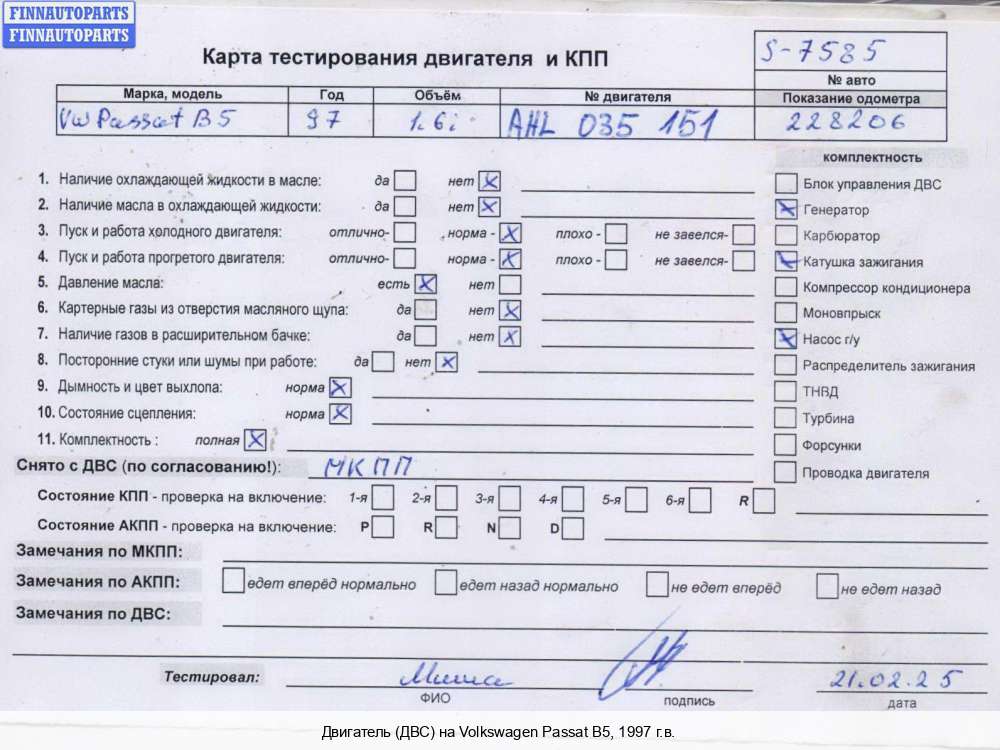 FINNAUTOPARTS
FINNAUTOPARTS
Карта тестирования двигателя и КПП
S-7585
№ авто
Марка, модель Год Объём № двигателя Показание одометра
VW Passat B5 97 1.6i AHL 035 151 228206
комплектность
1. Наличие охлаждающей жидкости в масле: да нет
Блок управления ДВС
2. Наличие масла в охлаждающей жидкости: да нет
Генератор
3. Пуск и работа холодного двигателя: отлично- норма - плохо - не завелся-
Карбюратор
4. Пуск и работа прогретого двигателя: отлично- норма - плохо - не завелся-
Катушка зажигания
5. Давление масла: есть нет
Компрессор кондиционера
6. Картерные газы из отверстия масляного щупа: да нет
Моновпрыск
7. Наличие газов в расширительном бачке: да нет
Насос г/у
8. Посторонние стуки или шумы при работе: да нет
Распределитель зажигания
9. Дымность и цвет выхлопа: норма
ТНВД
10. Состояние сцепления: норма
Турбина
11. Комплектность : полная
Форсунки
Снято с ДВС (по согласованию!): МКПП
Проводка двигателя
Состояние КПП - проверка на включение: 1-я 2-я 3-я 4-я 5-я 6-я R
Состояние АКПП - проверка на включение: P R N D
Замечания по МКПП:
Замечания по АКПП: едет вперёд нормально едет назад нормально не едет вперёд не едет назад
Замечания по ДВС:
Тестировал: Миша 21.02.25
ФИО подпись дата
Двигатель (ДВС) на Volkswagen Passat B5, 1997 г.в.